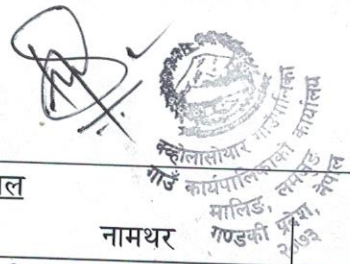 क्व्होलासोथार गाउँपालिका
गाउँ कार्यपालिकाको कार्यालय
मालिङ, लमजुङ
गण्डकी प्रदेश, नेपाल
२०७३
ल
नामथर